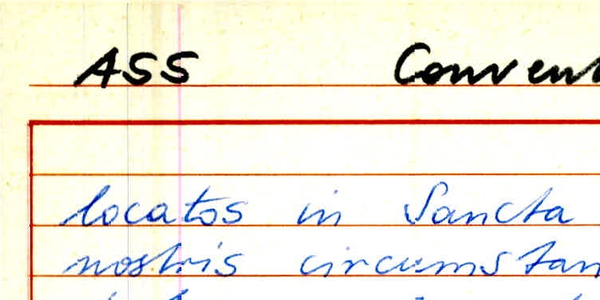 ASS Conven
locatos in Sancta
nostris circumstan